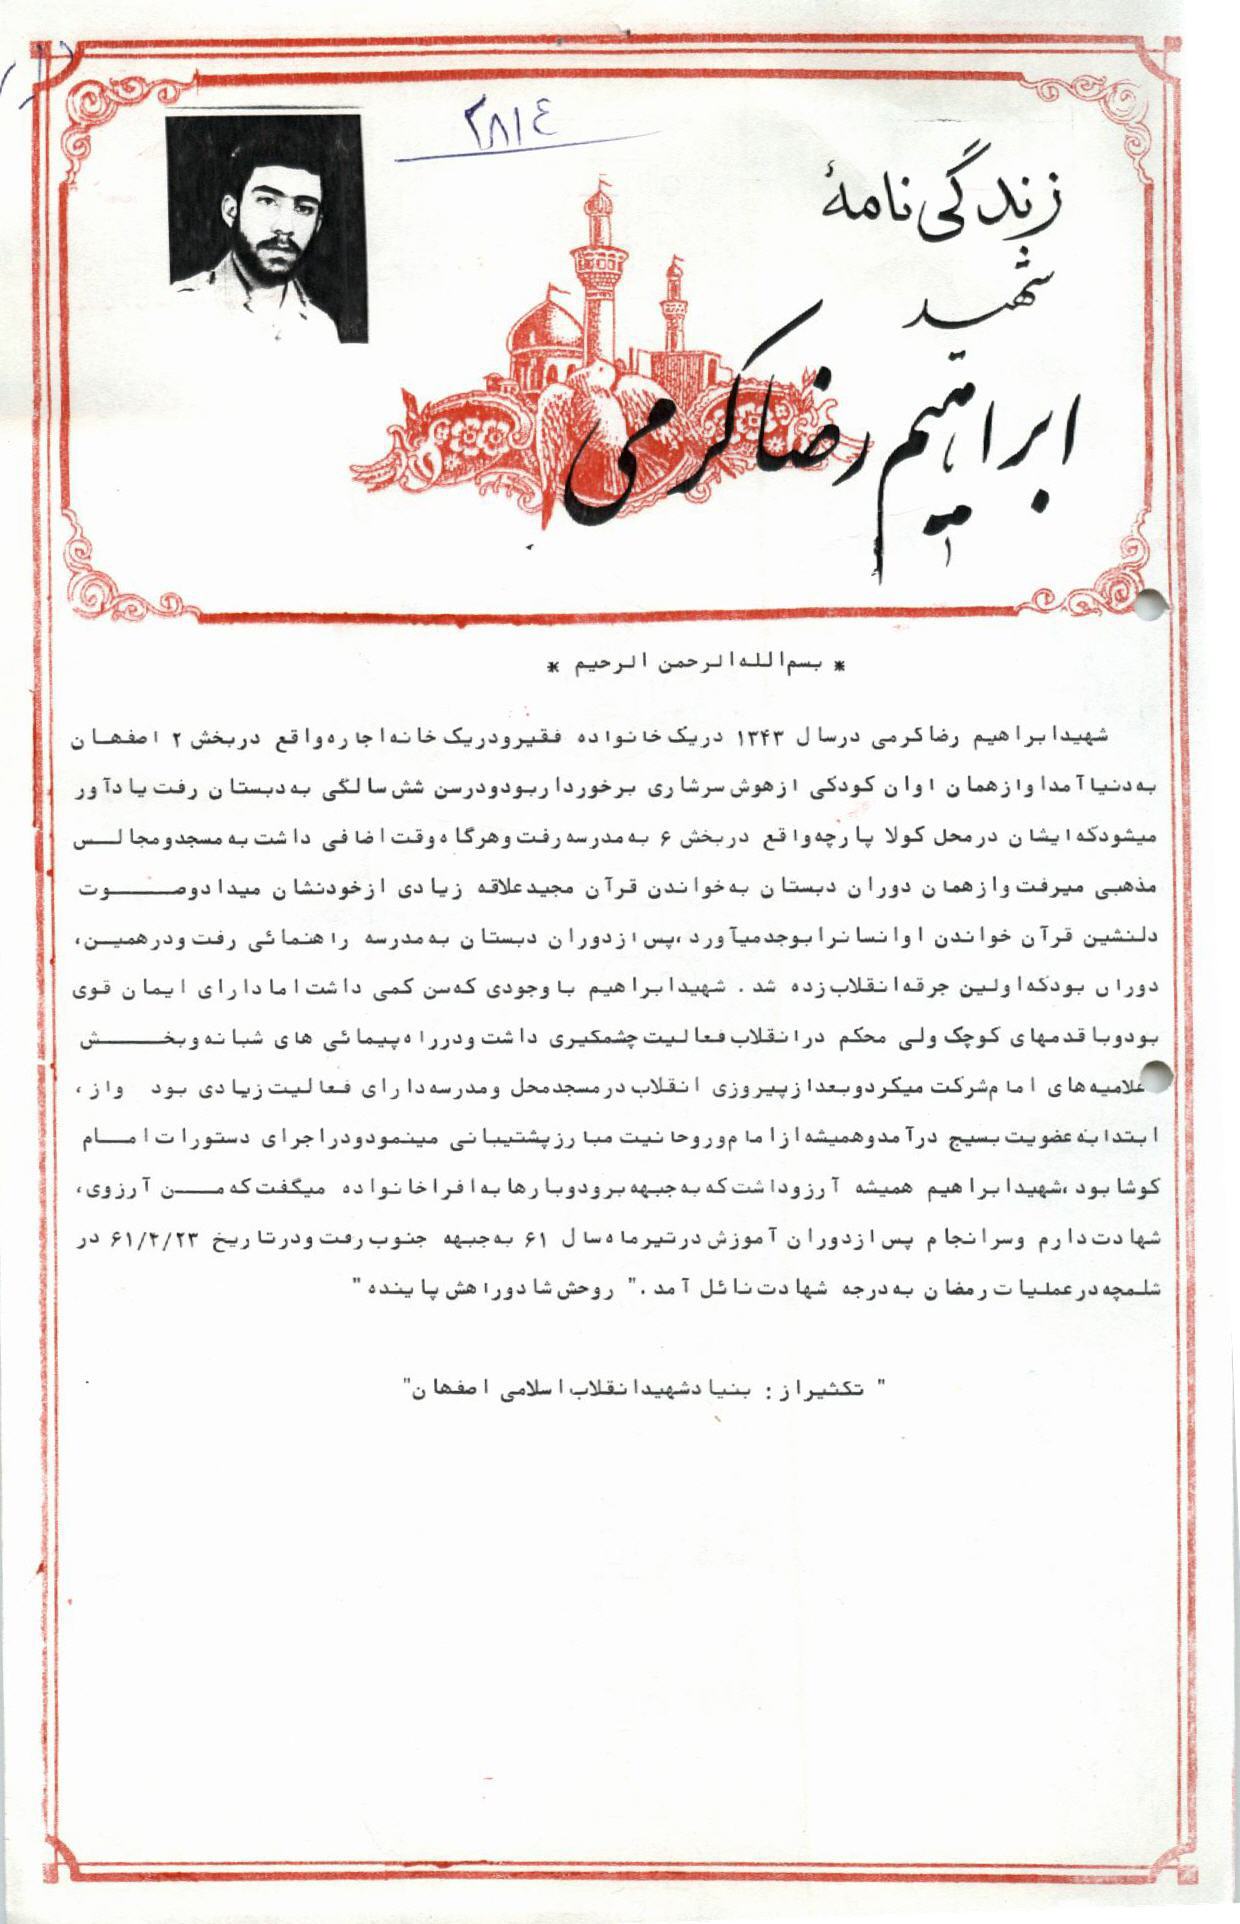 ۲۸۱٤
زندگی نامهٔ
شهید
ابراهیم رضا کرمی
* بسم الله الرحمن الرحیم *
شهید ابراهیم رضاکرمی درسال ۱۳۴۳ دریک خانواده فقیرودریک خانه اجاره واقع دربخش ۲ اصفهان
به دنیا آمد اوازهمان اوان کودکی ازهوش سرشاری برخورداربودودرسن شش سالگی به دبستان رفت یادآور
میشودکه ایشان درمحل کولا پارچه واقع دربخش ۶ به مدرسه رفت وهرگاه وقت اضافی داشت به مسجدومجالس
مذهبی میرفت وازهمان دوران دبستان به خواندن قرآن مجیدعلاقه زیادی ازخودنشان میدادوصوت
دلنشین قرآن خواندن اوانسانرابوجدمیآورد،پس ازدوران دبستان به مدرسه راهنمائی رفت ودرهمین،
دوران بودکه اولین جرقه انقلاب زده شد . شهیدابراهیم باوجودی که سن کمی داشت امادارای ایمان قوی
بودوباقدمهای کوچک ولی محکم درانقلاب فعالیت چشمگیری داشت ودرراه پیمائی های شبانه وبخش
علامیه های امام شرکت میکردوبعدازپیروزی انقلاب درمسجدمحل ومدرسه دارای فعالیت زیادی بود واز،
ابتدابه عضویت بسیج درآمدوهمیشه ازامام وروحانیت مبارزپشتیبانی مینمودودراجرای دستورات امام
کوشابود،شهیدابراهیم همیشه آرزوداشت که به جبهه برودوبارهابه افراخانواده میگفت که من آرزوی،
شهادت دارم وسرانجام پس ازدوران آموزش درتیرماه سال ۶۱ به جبهه جنوب رفت ودرتاریخ ۶۱/۴/۲۳ در
شلمچه درعملیات رمضان به درجه شهادت نائل آمد ." روحش شادوراهش پاینده "
" تکثیراز: بنیادشهیدانقلاب اسلامی اصفهان"